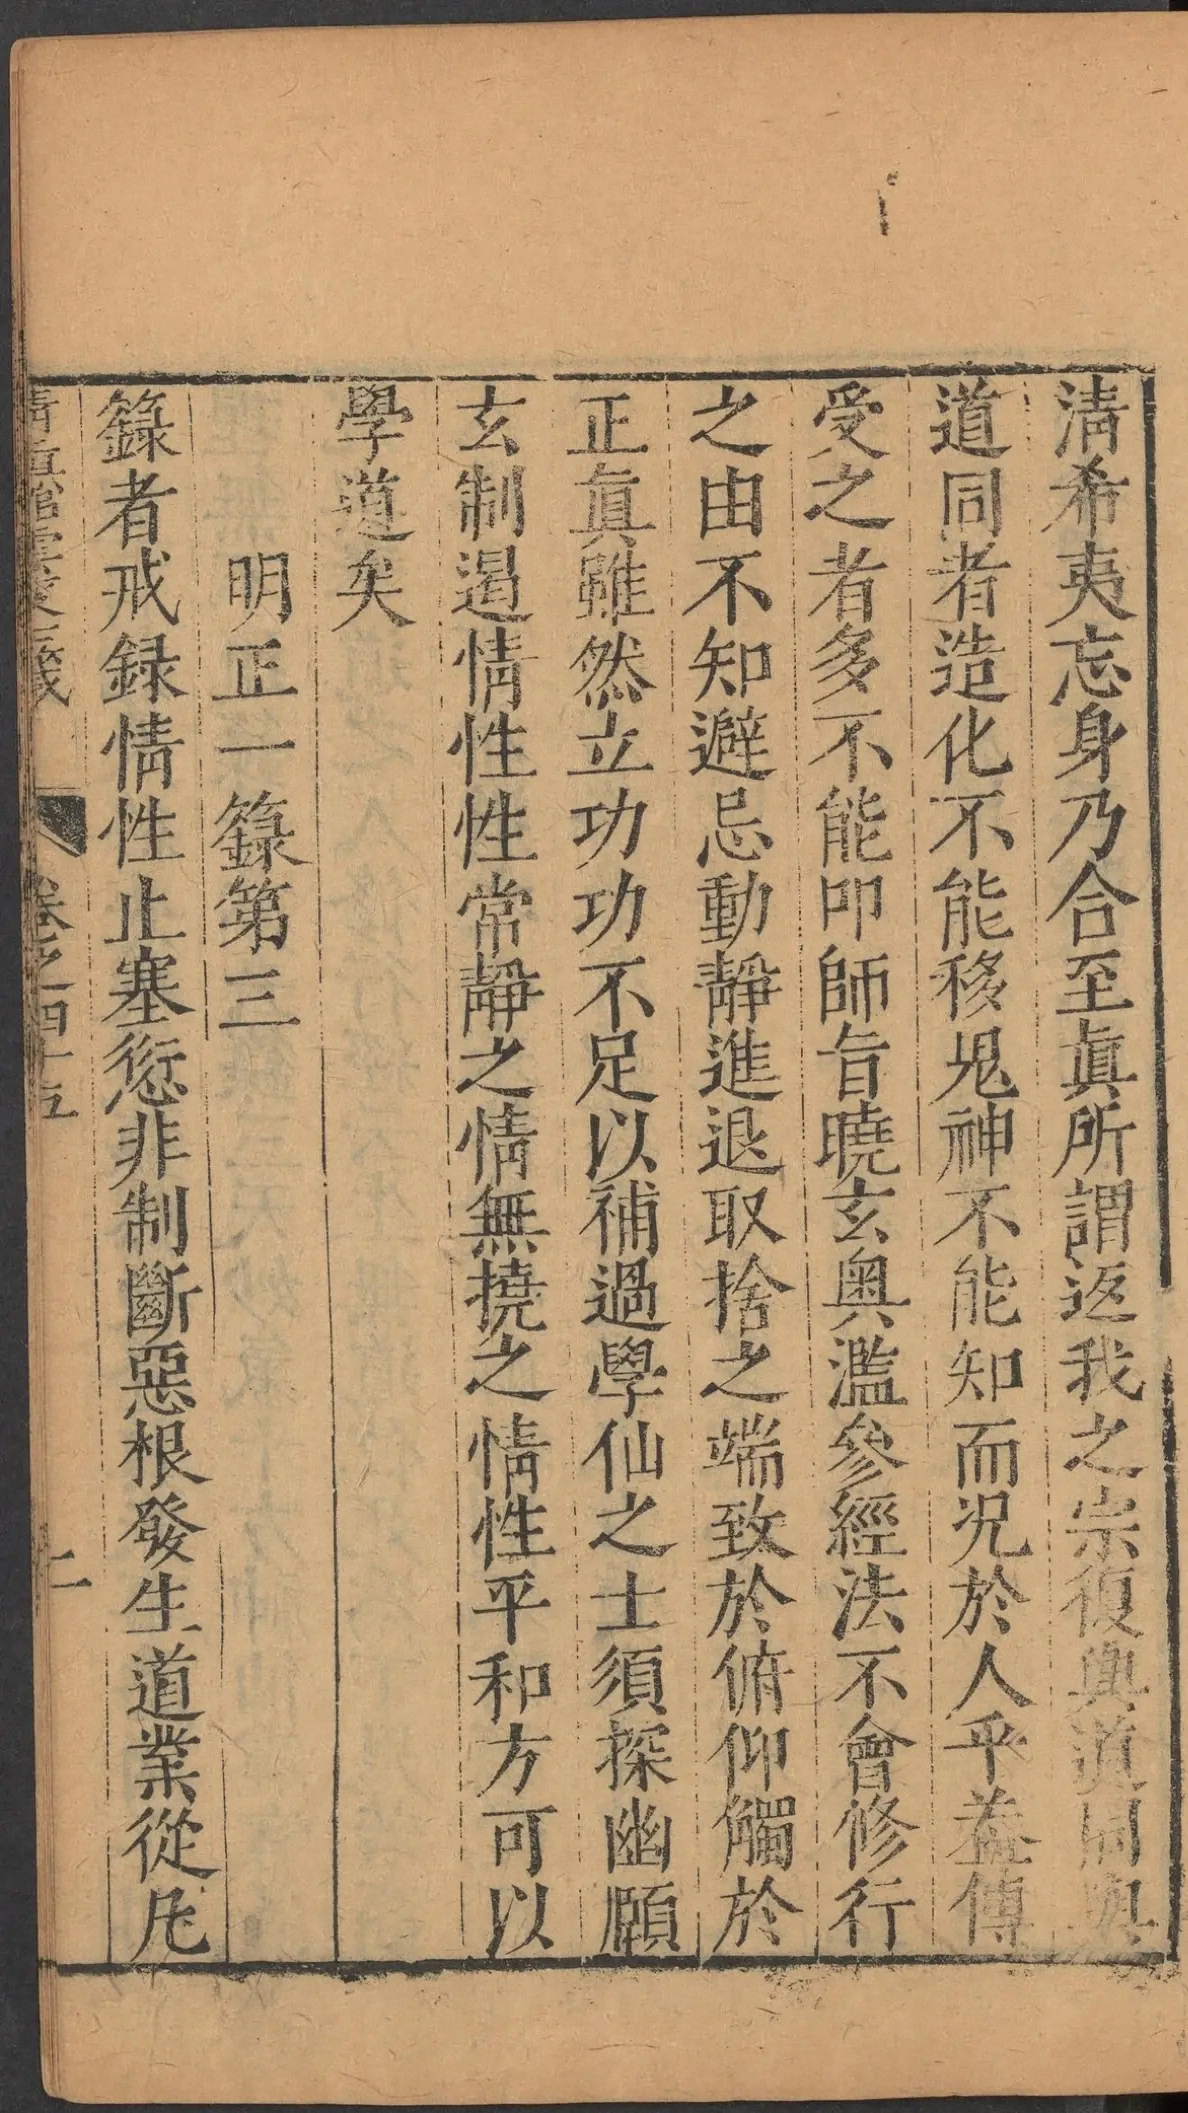 清希夷忘身乃合至眞所謂返我之宗復與道同與
道同者造化不能移鬼神不能知而况於人乎葢傳
受之者多不能叩師旨曉玄奥濫參經法不會修行
之由不知避忌動靜進退取捨之端致於俯仰觸於
正眞雖然立功功不足以補過學仙之士須探幽賾
玄制遏情性性常靜之情無撓之情性平和方可以
學道矣
明正一籙第三
籙者戒録情性止塞愆非制斷惡根發生道業從凡
卷之四十五
二